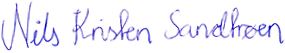 Nils Kristen Sandtrøen